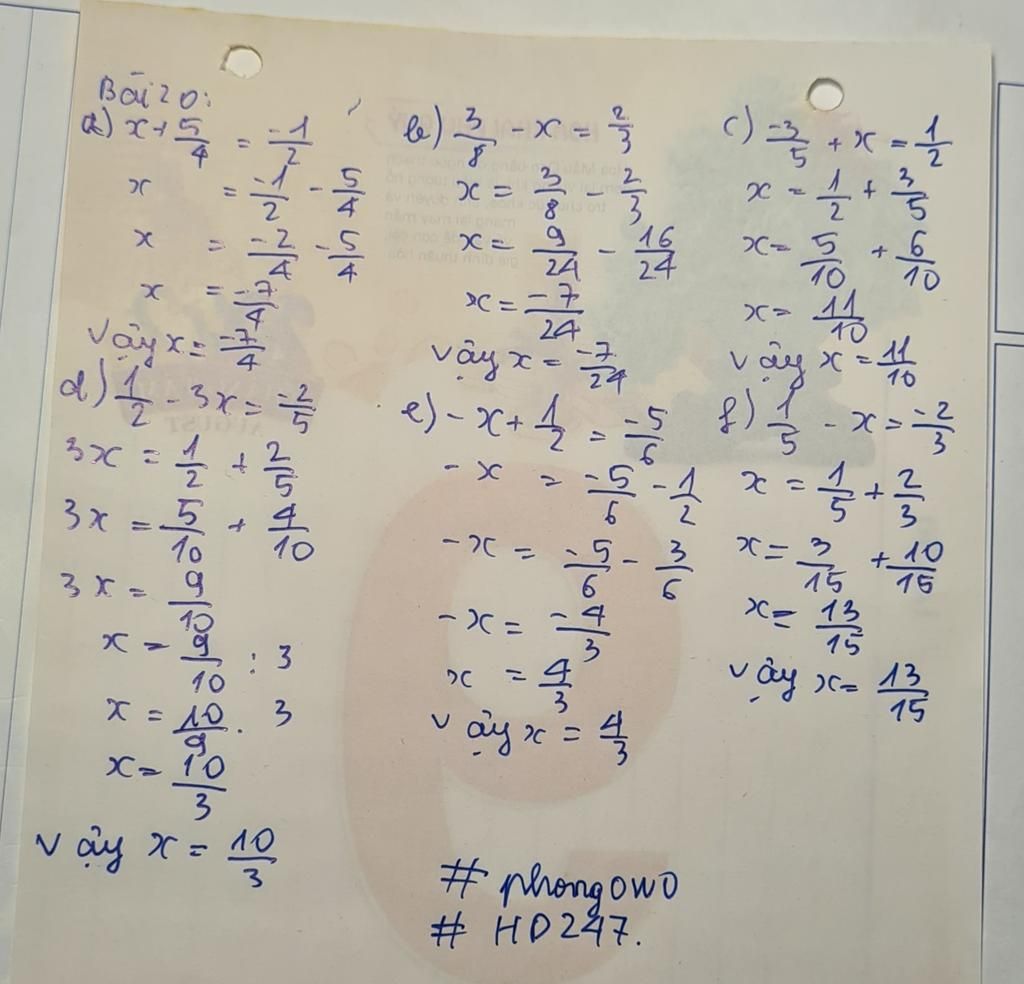 Bài 20:
a) x + 5/4 = -1/2
x = -1/2 - 5/4
x = -2/4 - 5/4
x = -7/4
Vậy x = -7/4
b) 3/8 - x = 2/3
x = 3/8 - 2/3
x = 9/24 - 16/24
x = -7/24
Vậy x = -7/24
c) -3/5 + x = 1/2
x = 1/2 + 3/5
x = 5/10 + 6/10
x = 11/10
Vậy x = 11/10
d) 1/2 - 3x = -2/5
3x = 1/2 + 2/5
3x = 5/10 + 4/10
3x = 9/10
x = 9/10 : 3
x = 10/9 . 3
x = 10/3
Vậy x = 10/3
e) -x + 1/2 = -5/6
-x = -5/6 - 1/2
-x = -5/6 - 3/6
-x = -4/3
x = 4/3
Vậy x = 4/3
f) 1/5 - x = -2/3
x = 1/5 + 2/3
x = 3/15 + 10/15
x = 13/15
Vậy x = 13/15
# phongowo
# HD247.